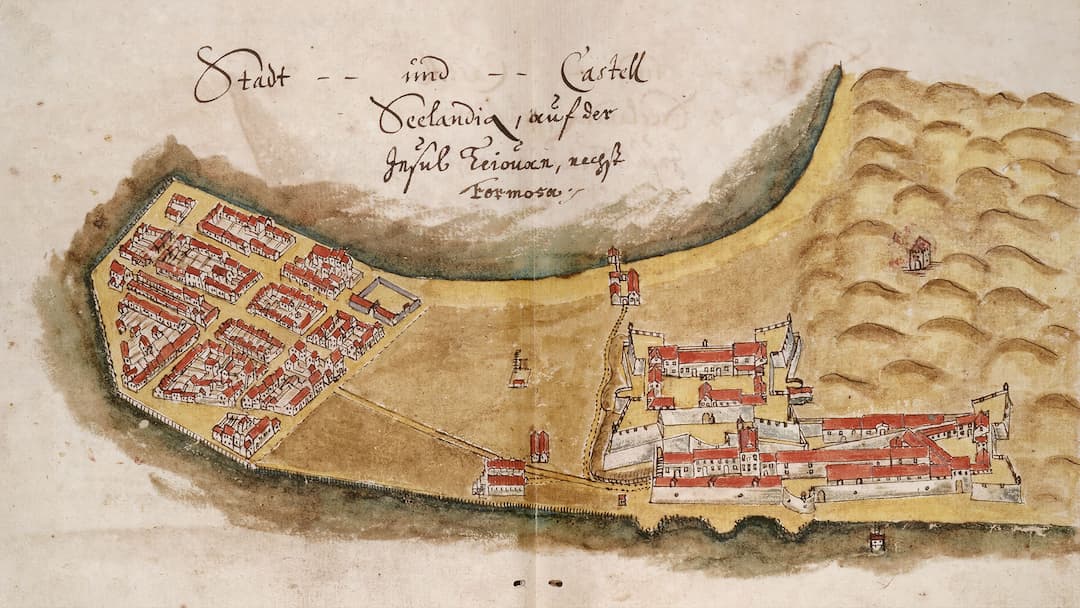 Stadt -- und -- Castell
Seelandia, auf der
Insul Teiouan, nechst
Formosa: